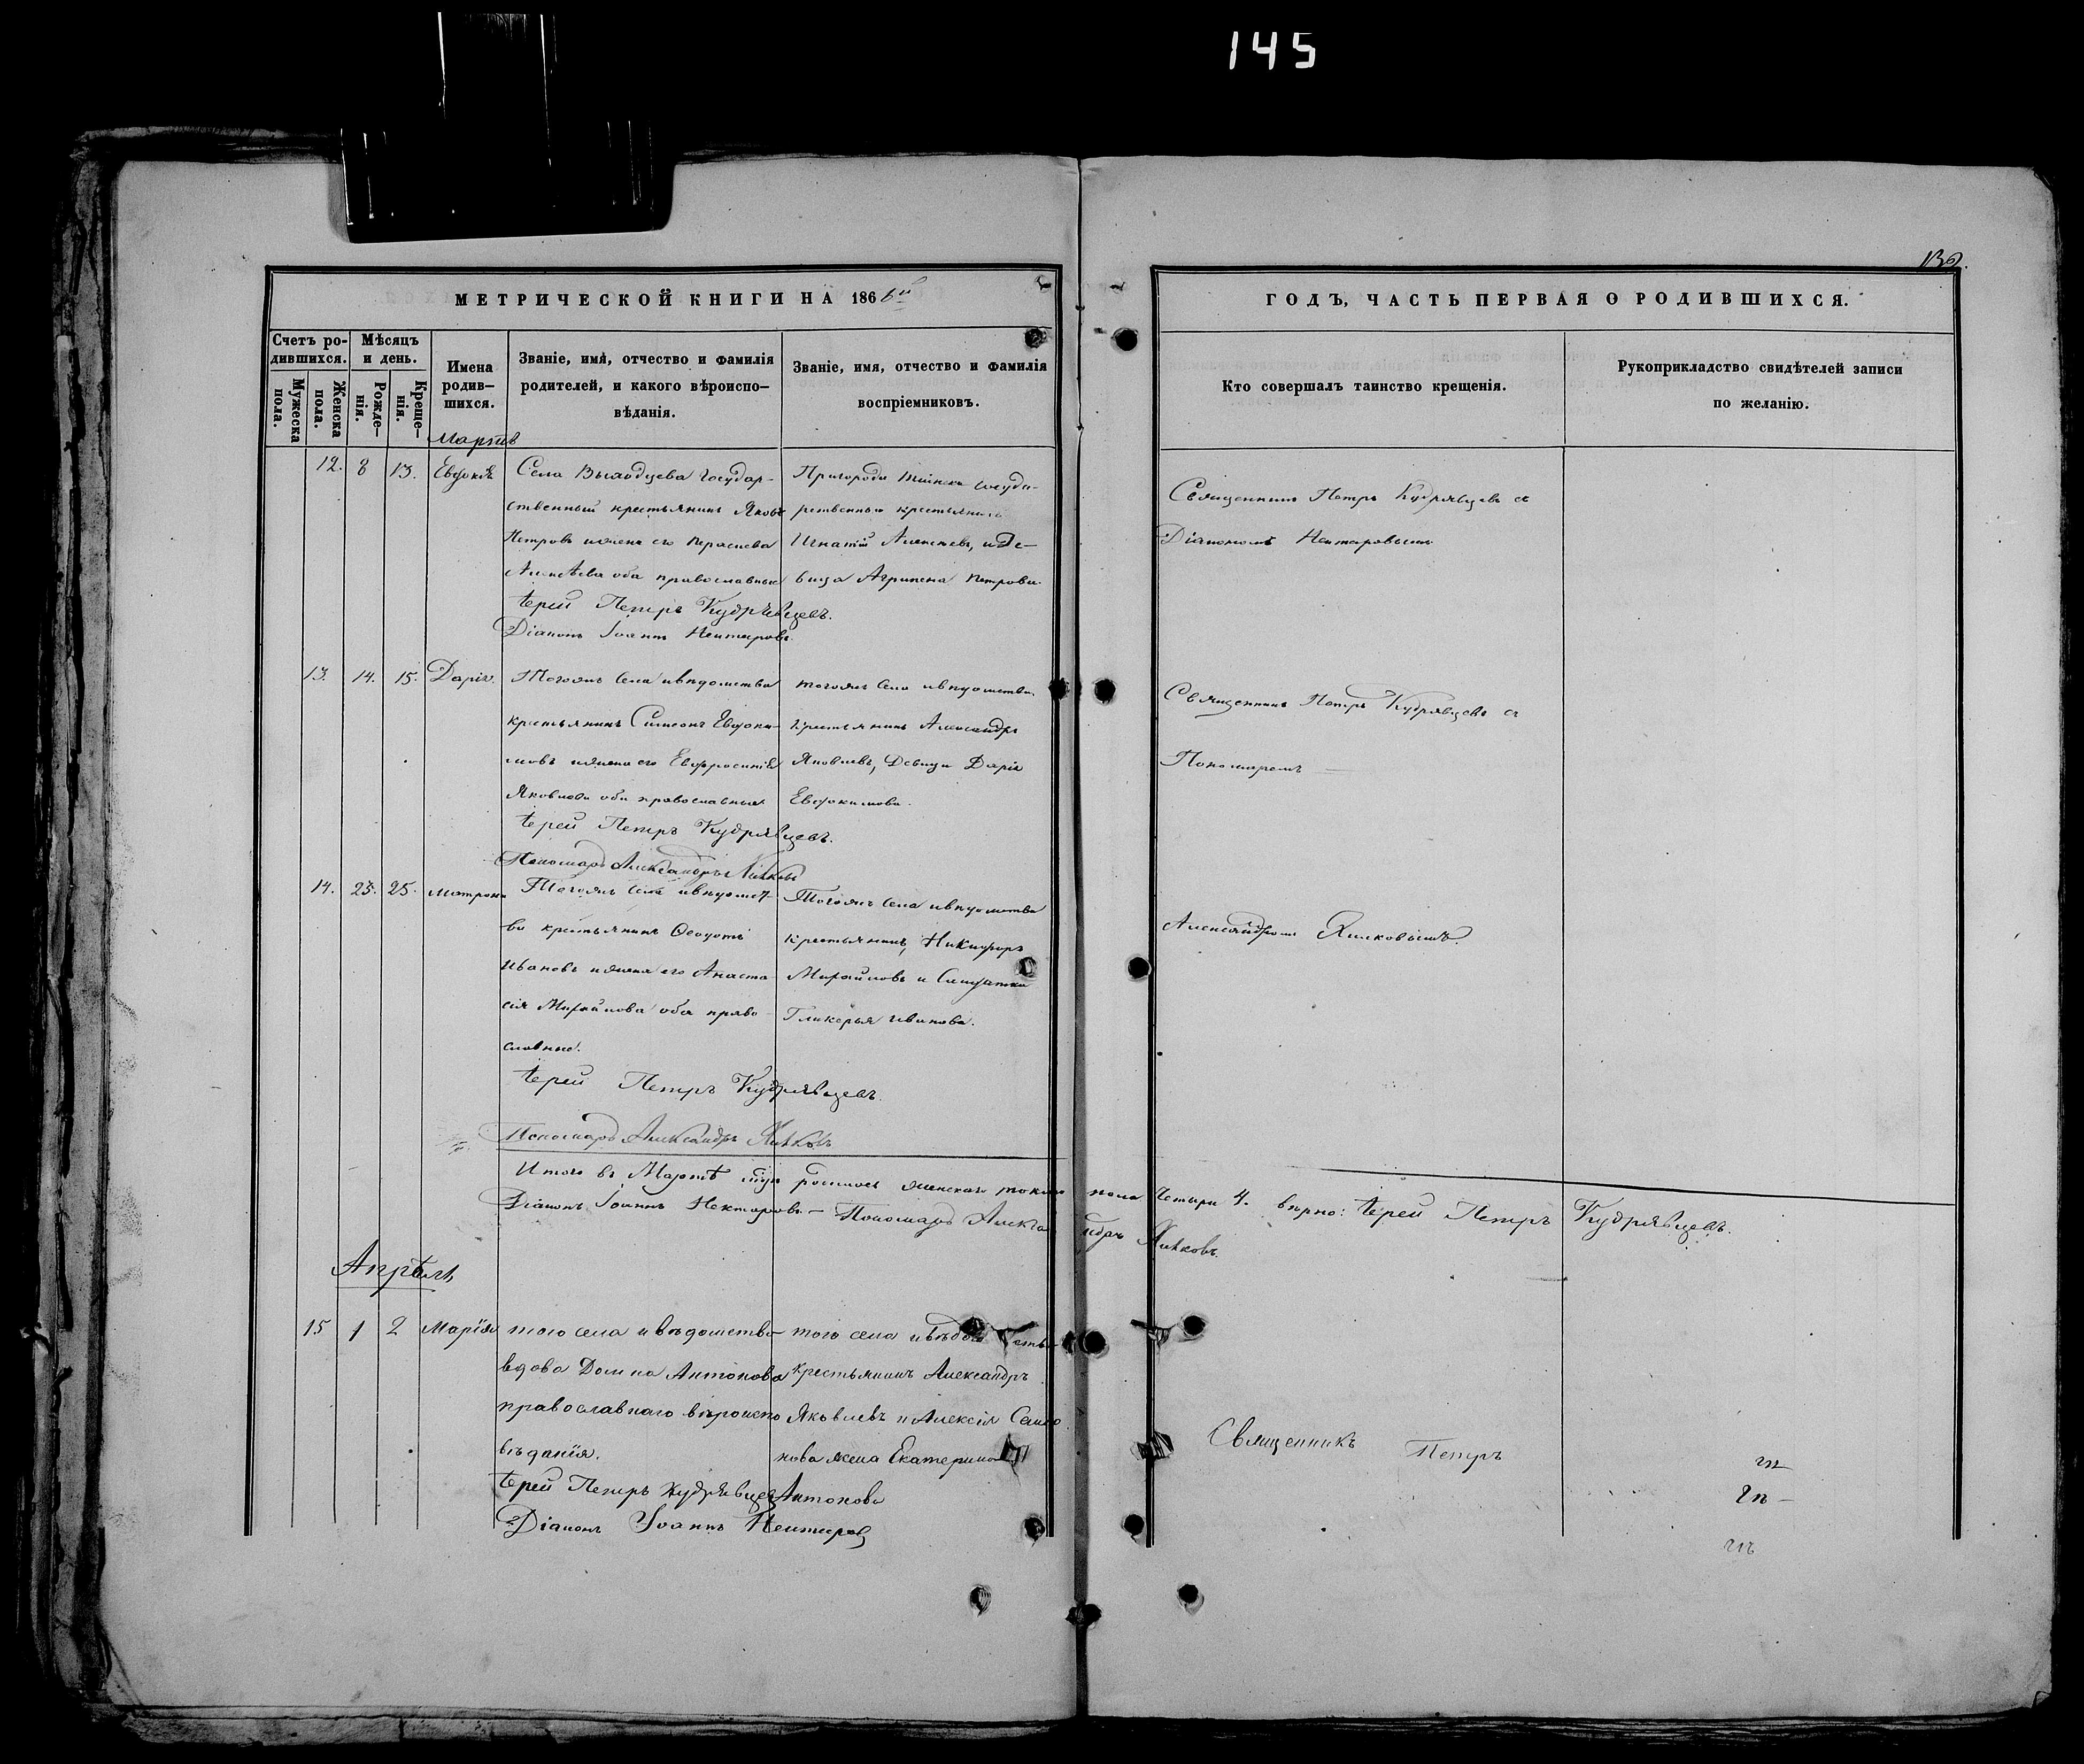 145
130.
МЕТРИЧЕСКОЙ КНИГИ НА 186
ГОДЪ, ЧАСТЬ ПЕРВАЯ О РОДИВШИХСЯ.
Счетъ ро-
дившихся.
Мужеска
пола.
Женска
пола.
Мѣсяцъ
и день.
Рожде-
нія.
Креще-
нія.
Имена
родив-
шихся.
Званіе, имя, отчество и фамилія
родителей, и какого вѣроиспо-
вѣданія.
Званіе, имя, отчество и фамилія
воспріемниковъ.
Кто совершалъ таинство крещенія.
Рукоприкладство свидѣтелей записи
по желанію.
Мартъ
12. 8 13.
Села Государ-
ственный крестьянинъ Яковъ
Петровъ и жена его
Алексѣева оба православные
Іерей Петръ Кудрявцевъ.
Діаконъ Іоаннъ Нектаровъ.
Пригорода госуда-
рственный крестьянинъ
Игнатій Алексѣевъ, и Дѣ-
вица Агрипена Петрова.
Священникъ Петръ Кудрявцевъ съ
Діакономъ Нектаровымъ
13. 14. 15. Дарія.
Тогожъ села и вѣдомства
крестьянинъ Симеонъ Евдоки-
мовъ и жена его Евфросинія
Яковлева оба православные
Іерей Петръ Кудрявцевъ.
Пономарь Александръ
тогожъ села и вѣдомства
крестьянинъ Александръ
Яковлевъ, Девица Дарія
Евдокимова.
Священникъ Петръ Кудрявцевъ съ
Пономаремъ —
14. 23. 25. Матрона
Тогожъ села и вѣдомст-
ва крестьянинъ Ѳеодотъ
Ивановъ и жена его Анаста-
сія Михайлова оба право-
славные.
Іерей Петръ Кудрявцевъ.
Пономарь Александръ
Тогожъ села и вѣдомства
крестьянинъ, Никифоръ
Михайловъ и Солдатка
Гликерья Иванова.
Александромъ
Итого въ Мартѣ родилось женскаго токмо пола четыри 4. вѣрно: Іерей Петръ Кудрявцевъ.
Діаконъ Іоаннъ Нектаровъ — Пономарь Александръ
Апрѣль
15 1 2 Марія
того села и вѣдомства
вдова Домна Антонова
православнаго вѣроиспо
вѣданія.
Іерей Петръ Кудрявцевъ
Діаконъ Іоаннъ Нектаровъ
того села и вѣдомства
крестьянинъ Александръ
Яковлевъ и Алексія
нова жена Екатерина
Антонова
Священникъ Петръ